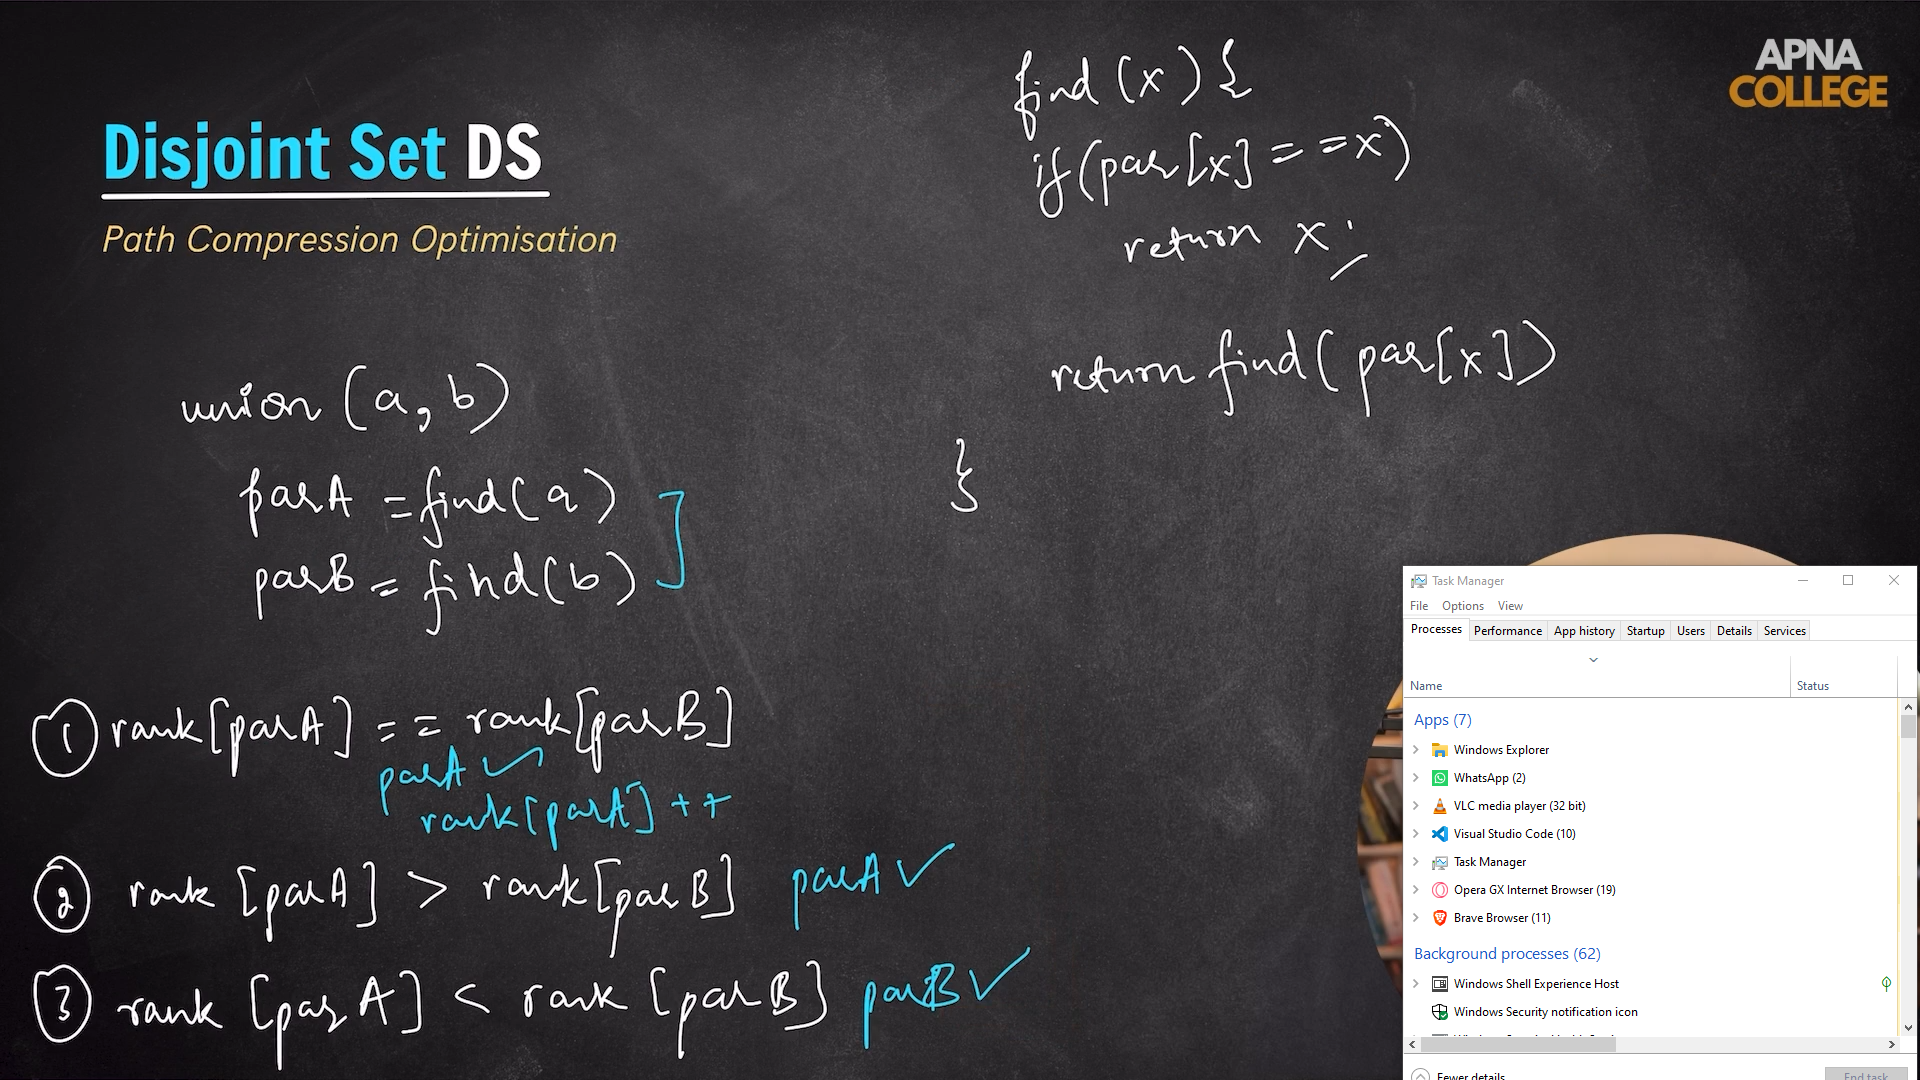 APNA
COLLEGE
Disjoint Set DS
Path Compression Optimisation
find (x) {
if(par[x] = =x)
return x;
return find( par[x])
}
union (a, b)
parA = find(a)
parB = find(b)
1 rank[parA] = = rank[parB]
parA ✓
rank[parA] ++
2 rank [parA] > rank[parB] parA ✓
3 rank [parA] < rank [parB] parB ✓
Task Manager
File Options View
Processes Performance App history Startup Users Details Services
Name Status
Apps (7)
Windows Explorer
WhatsApp (2)
VLC media player (32 bit)
Visual Studio Code (10)
Task Manager
Opera GX Internet Browser (19)
Brave Browser (11)
Background processes (62)
Windows Shell Experience Host
Windows Security notification icon
Fewer details End task